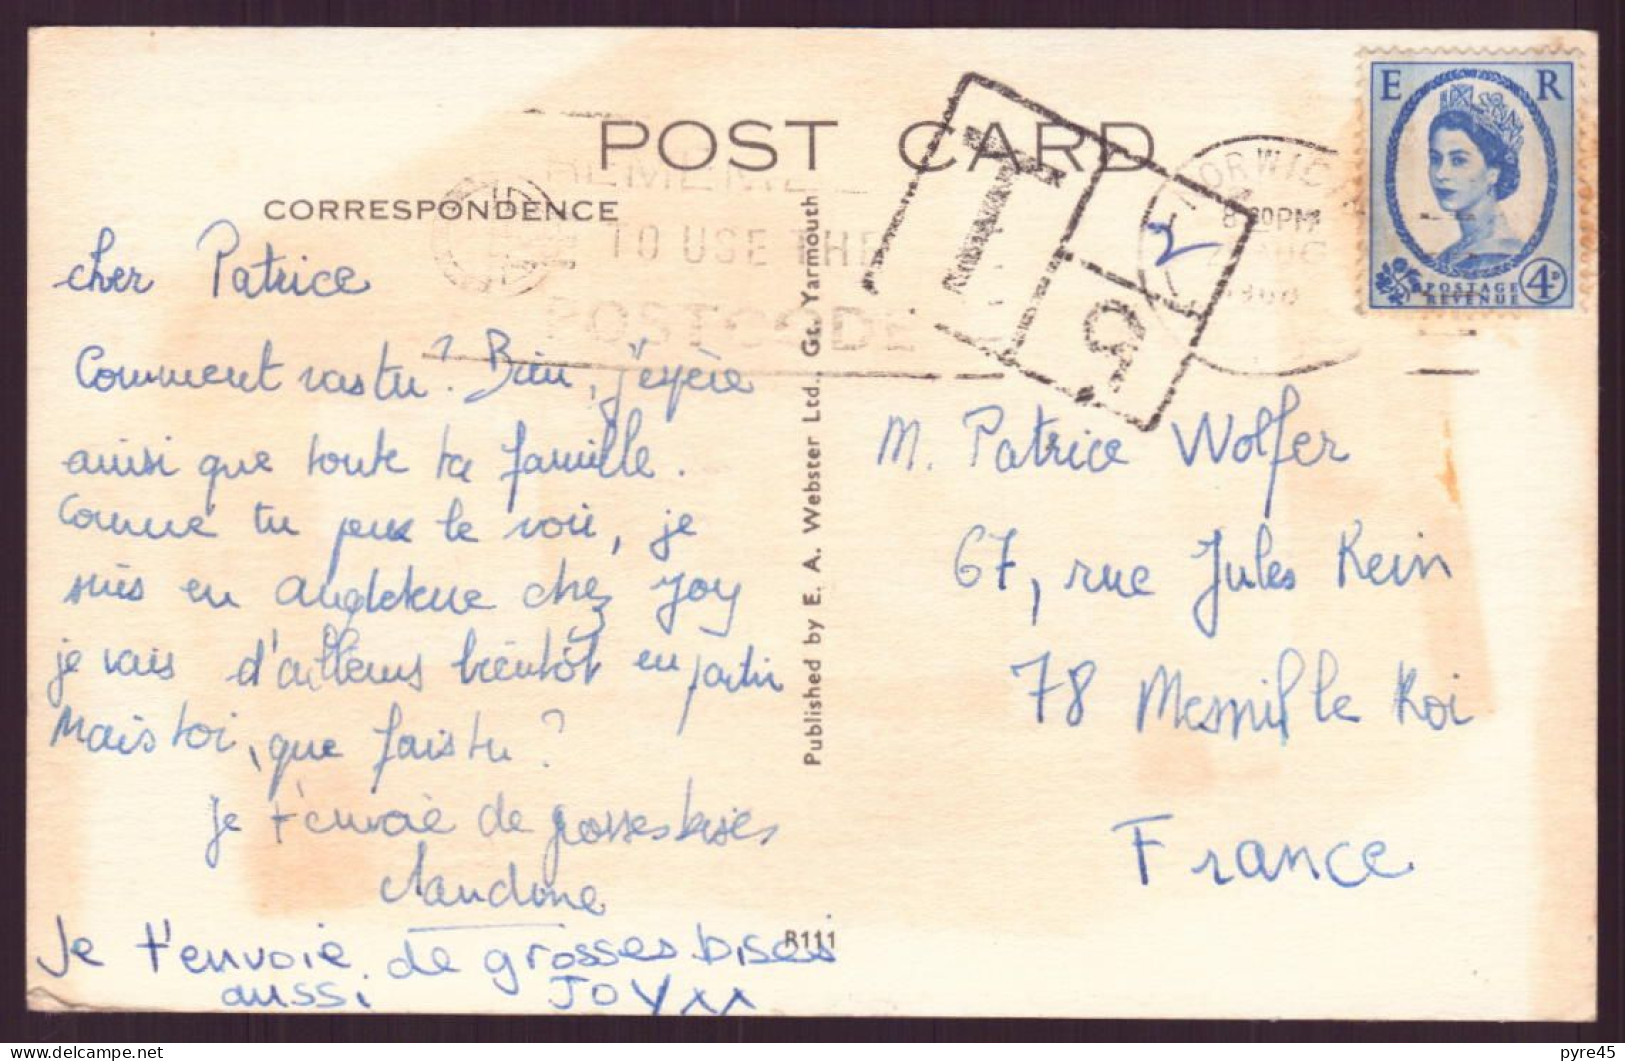 POST CARD
CORRESPONDENCE
REMEMBER
TO USE THE
POSTCODE
NORWICH
8 30PM
AUG
T
2
5
E R
POSTAGE
REVENUE
4D
cher Patrice
Comment vas tu? Bien, j'espère
ainsi que toute ta famille.
Comme tu peux le voir, je
suis en angleterre chez Joy
je vais d'ailleurs bientôt en partir
Mais toi, que fais tu?
je t'envoie de grosses bises
Claudine
Je t'envoie de grosses bises
aussi JOY xx
Published by E. A. Webster Ltd., Gt. Yarmouth
R111
M. Patrice Wolfer
67, rue Jules Rein
78 Mesnil le Roi
France
pyre45
delcampe.net